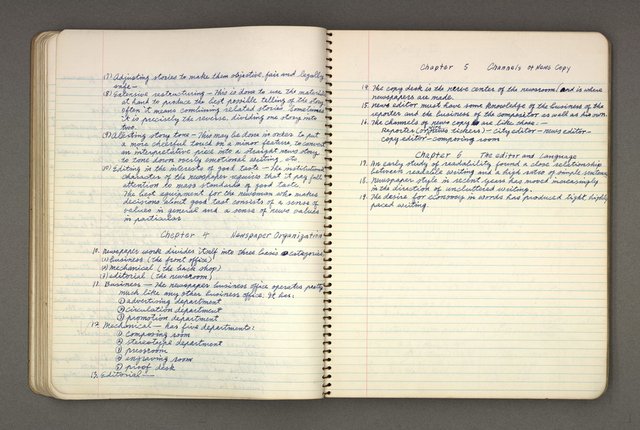 (7) Adjusting stories to make them objective, fair and legally
(8) Extensive restructuring — This is done to use the materials
at hand to produce the best possible telling of the story.
Often it means combining related stories. Sometimes
it is precisely the reverse, dividing one story into
two.
(9) Adjusting story tone — This may be done in order to put
a more cheerful touch on a minor feature, to convert
an interpretative piece into a straight news story
to tone down overly emotional writing, etc.
(10) Editing in the interests of good taste — the institutional
character of the newspaper requires that it pay full
attention to mass standards of good taste.
The best equipment for the newsman who makes
decisions about good taste consists of a sense of
values in general and a sense of news values
in particular.
Chapter 4 Newspaper Organization
10. Newspaper work divides itself into three basic categories
(1) business (the front office)
(2) mechanical (the back shop)
(3) editorial (the newsroom)
11. Business — the newspaper business office operates pretty
much like any other business office. It has:
① advertising department
② circulation department
③ promotion department
12. Mechanical — has five departments:
① composing room
② stereotype department
③ pressroom
④ engraving room
⑤ proof desk
13. Editorial —
Chapter 5 Channels of News Copy
14. The copy desk is the nerve center of the newsroom and is where
newspapers are made.
15. news editor must have some knowledge of the business of the
reporter and the business of the compositor as well as his own.
16. The channels of news copy are like these:—
Reporter (or news tickers) — City editor — news editor —
copy editor — composing room
Chapter 6 The editor and Language
17. An early study of readability found a close relationship
between readable writing and a high ratio of simple sentences
18. Newspaper style in recent years has moved increasingly
in the direction of uncluttered writing.
19. The desire for economy in words has produced tight highly
paced writing.